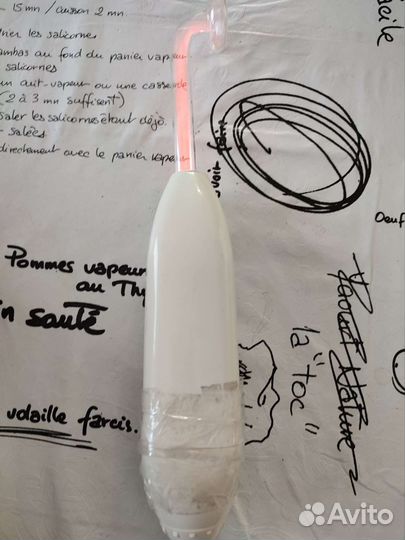 15 mn / cuisson 2 mn.
les salicornes
ambas au fond du panier vapeur
salicornes
un cuit-vapeur ou une casse
(2 à 3 mn suffisent)
saler les salicornes étant déjà
salées
directement avec le panier vapeur
cile
voir
Oeuf
Pommes vapeur
au Thy
n sauté
volaille farcis.
Yaourt Nature
la "toc"
Avito